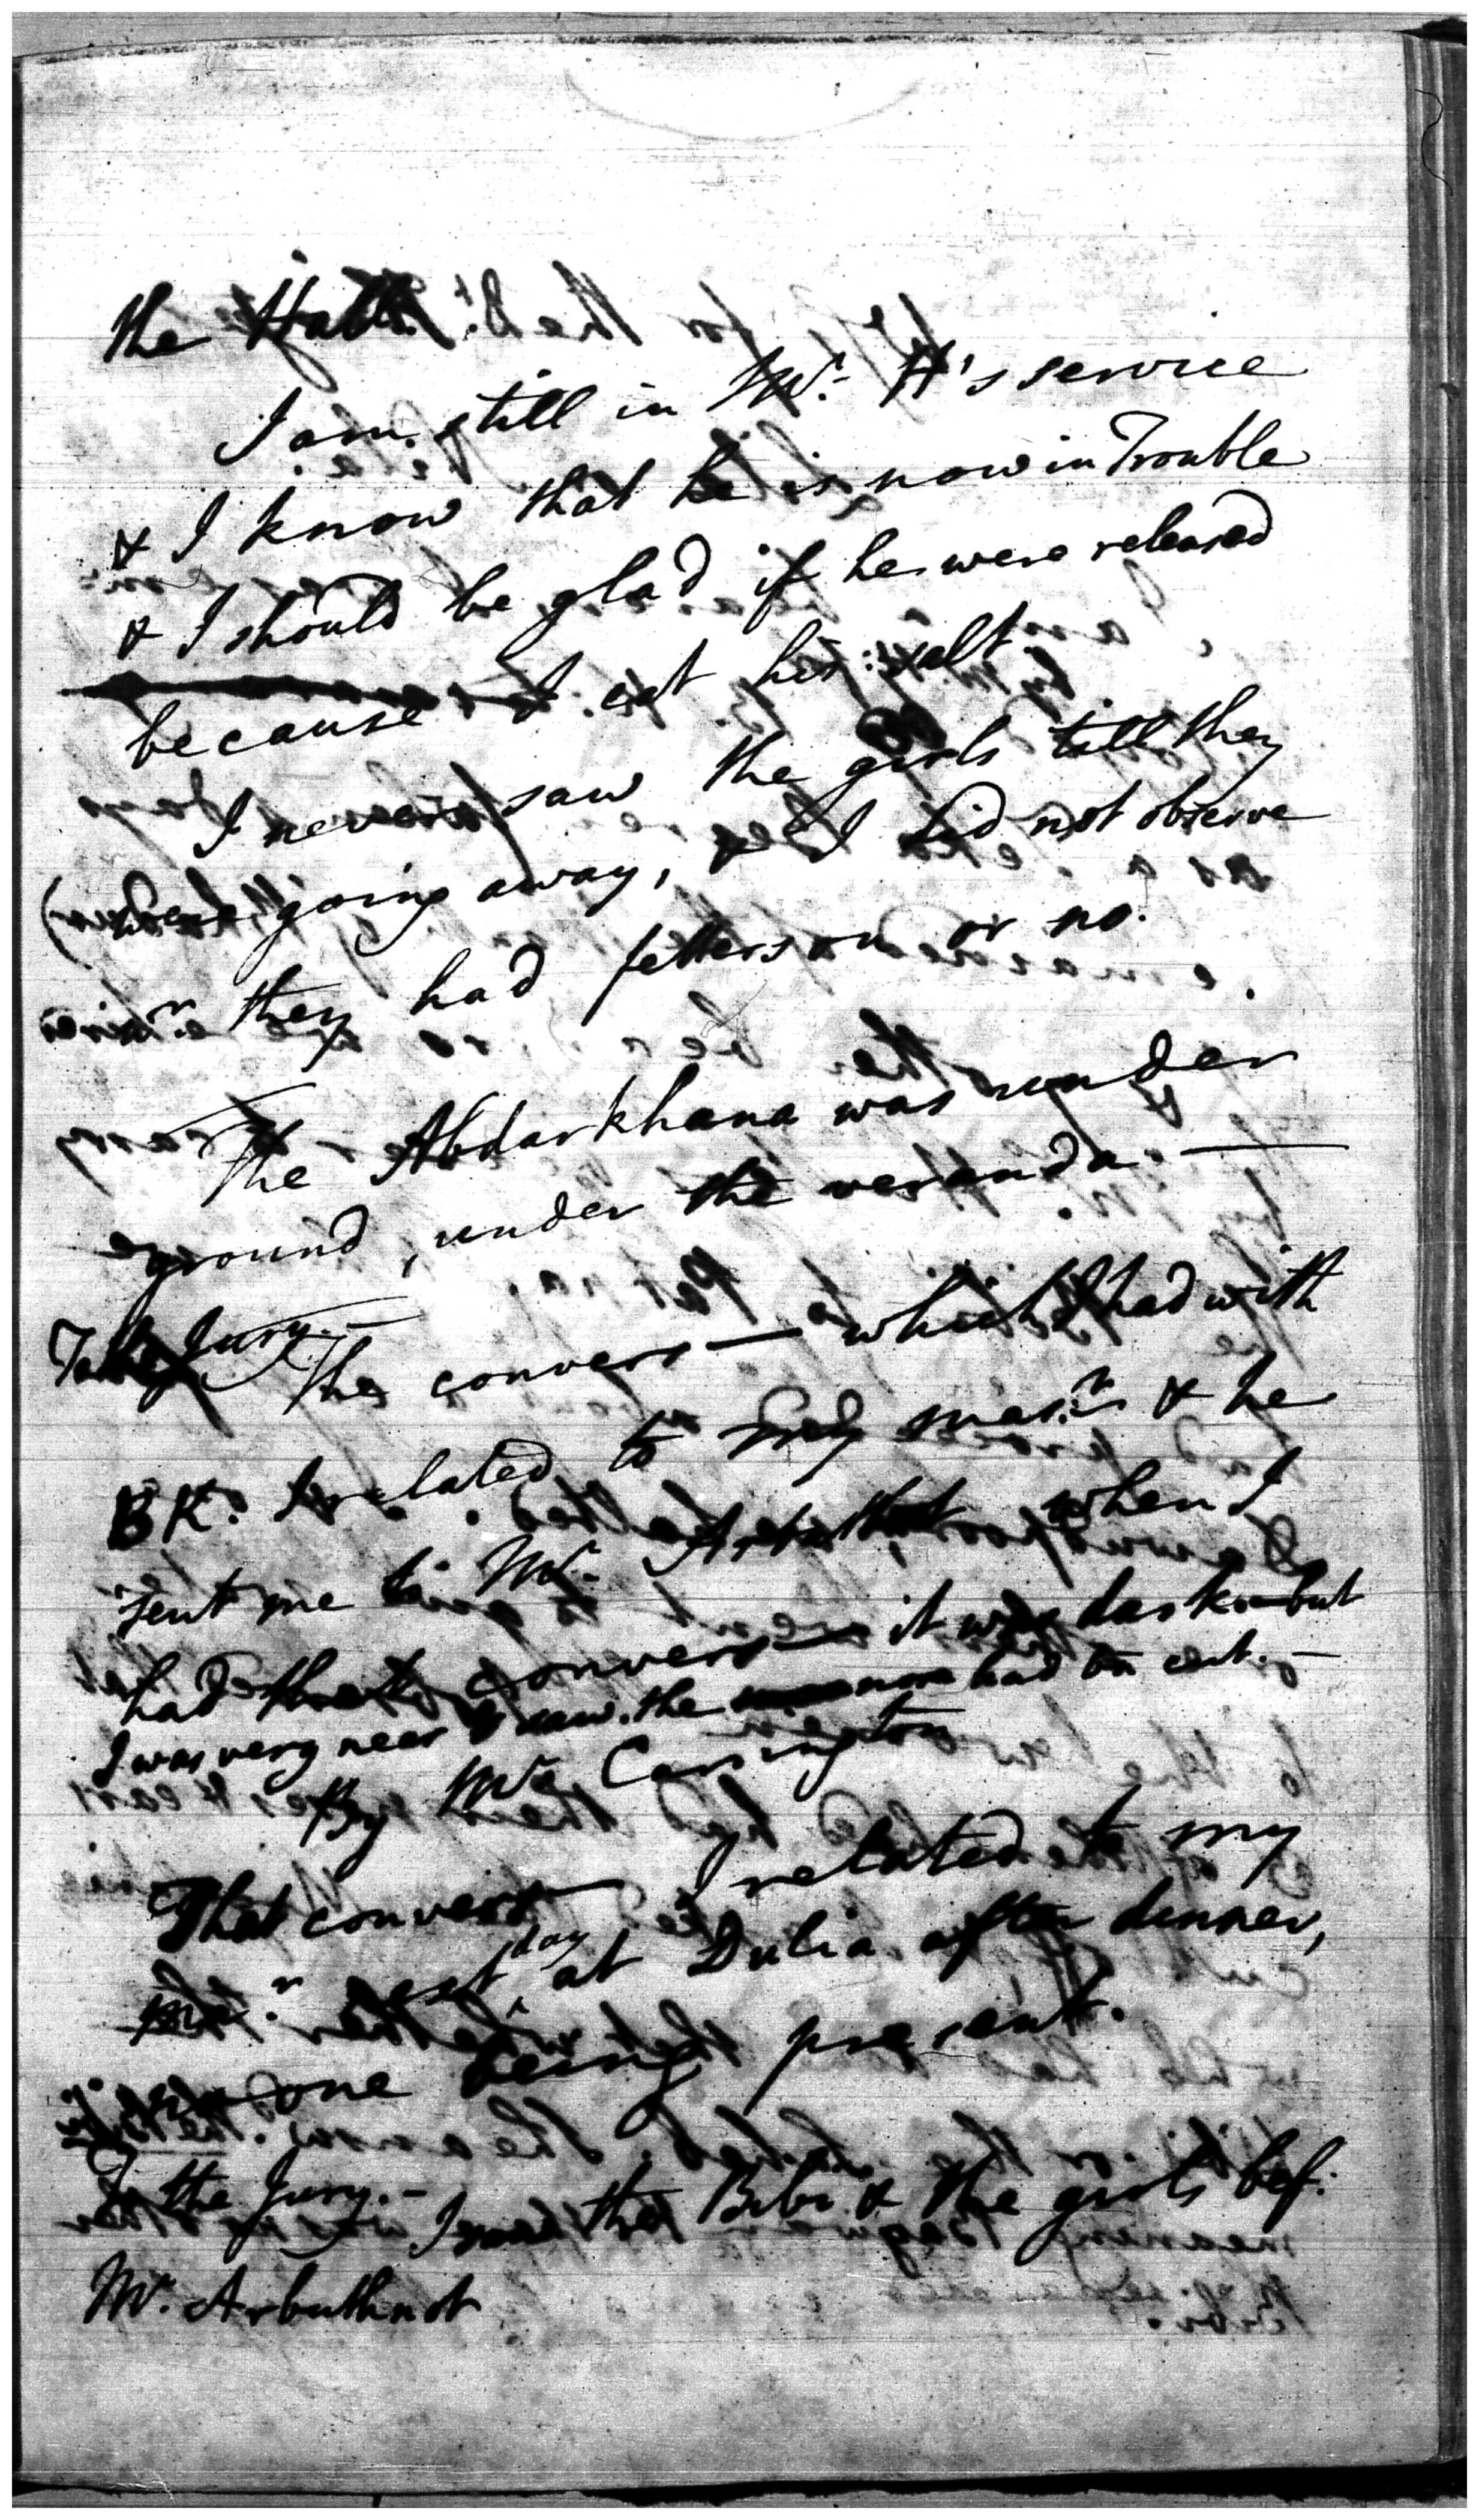 the Hall.
I am still in Mr. H's service
& I know that he is now in Trouble
& I should be glad if he were released
because I eat his salt.
I never saw the girls till they
were going away, & I did not observe
they had fetters on or no.
The Abdarkhana was under
ground, under the veranda. —
To the Jury. —
The convers— which I had with
BK. I related to my mas.r & he
sent me to Mr. Arbuthnot, when I
had that convers— it was dark — but
I was very near & saw the nose had bn cut. —
By Mr. Carrington
That convers— I related to my
mas.r next day at Dulia after dinner,
no one being present.
To the Jury. —
I saw the Bibi & the girls bef.
Mr. Arbuthnot